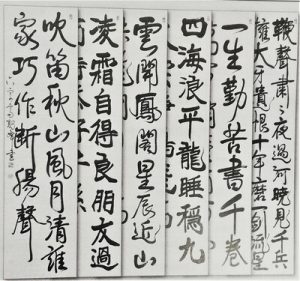 鞭聲肅々夜過河曉見千兵
擁大牙遺恨十年磨一劍流星
一生勤苦書千卷
四海浪平龍睡穩九
雲開鳳闕星辰近山
凌霜自得良朋友過
吹笛秋山風月清誰
家巧作斷腸聲